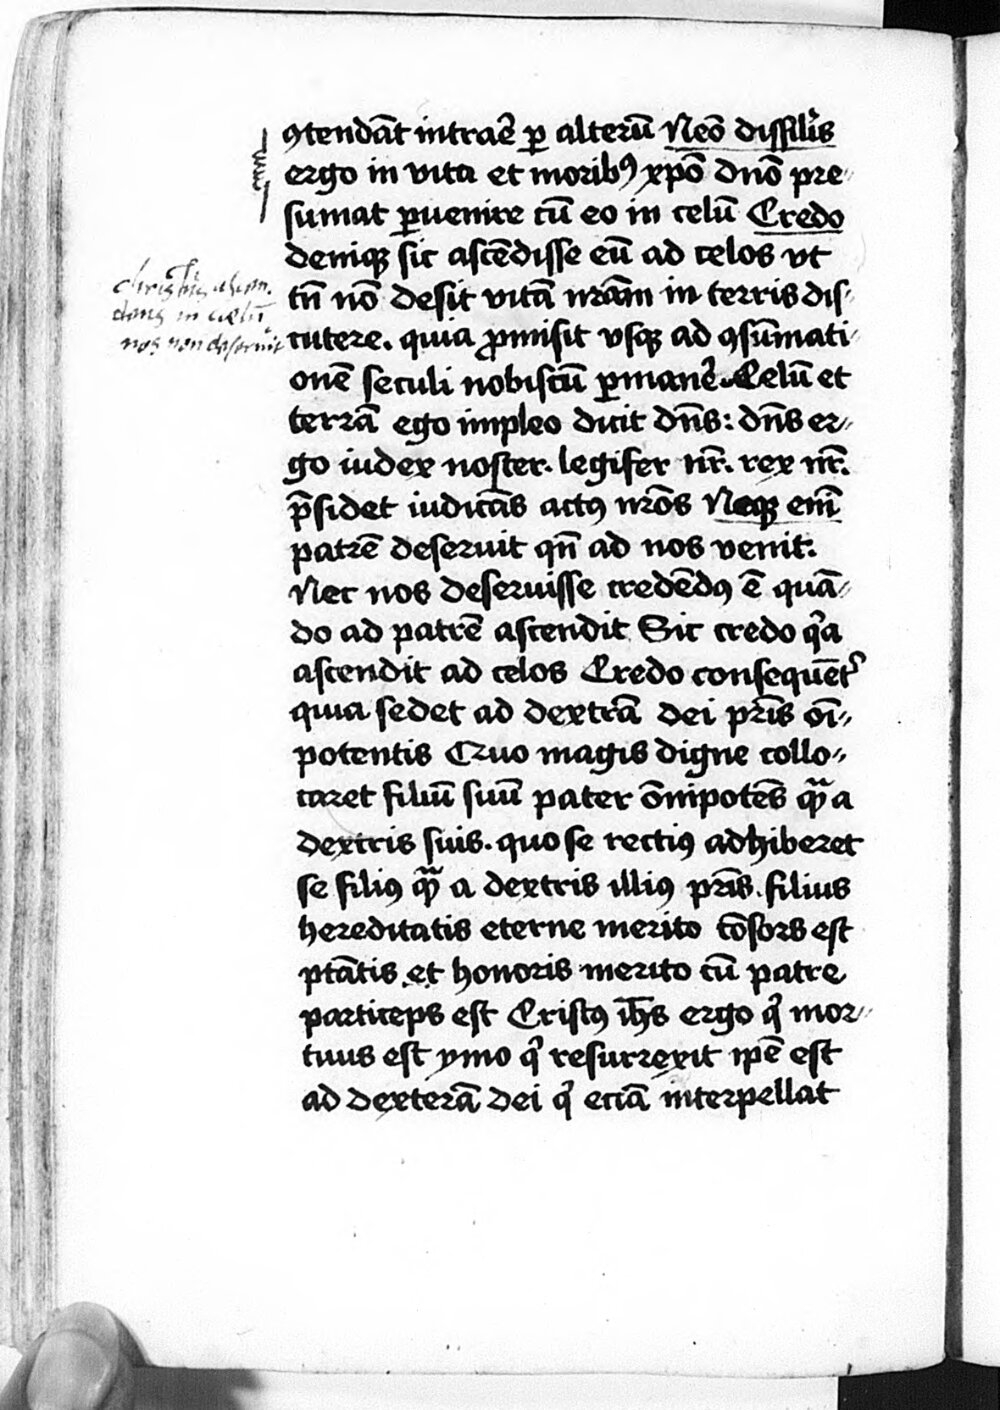 ꝯtendāt intrar̄e ꝑ alterū Neō dissilis
ergo in vita et moribꝰ xp̄o dn̄o pre⸗
sumat ꝑuenire cū eo in celū Credo
deniqꝫ sic ascēdisse eū ad celos vt
tn̄ nō desit vitā nrām in terris dis⸗
cutere. quia ꝓmisit vsqꝫ ad ꝯsūmati⸗
onē seculi nobiscū ꝑmaner̄e. Celū et
terrā ego impleo dicit dn̄s: dn̄s er⸗
go iudex noster. legifer nr̄. rex nr̄.
p̄sidet iudicās actꝰ nrōs Neqꝫ eni̅
patrē deseruit qn̄ ad nos venit.
Nec nos deseruisse credēdꝰ ē quā⸗
do ad patrē ascendit Sic credo qͥa
ascendit ad celos Credo consequēt᷑
quia sedet ad dextrā dei pr̄is oi̅⸗
potentis Quo magis digne collo⸗
caret filiū suū pater om̄ipotēs qᷓꝫ a
dextris suis. quo se rectiꝰ adhiberet
se filiꝰ qᷓꝫ a dextris illiꝰ pr̄is. filius
hereditatis eterne merito cōsors est
ptātis et honoris merito cū patre
particeps est Cristꝰ ih̄s ergo qͥ mor⸗
tuus est ymo qͥ resurrexit ip̄e est
ad dexterā dei qͥ eciā interpellat
christus ascen
dens in cœlū
nos non deseruit